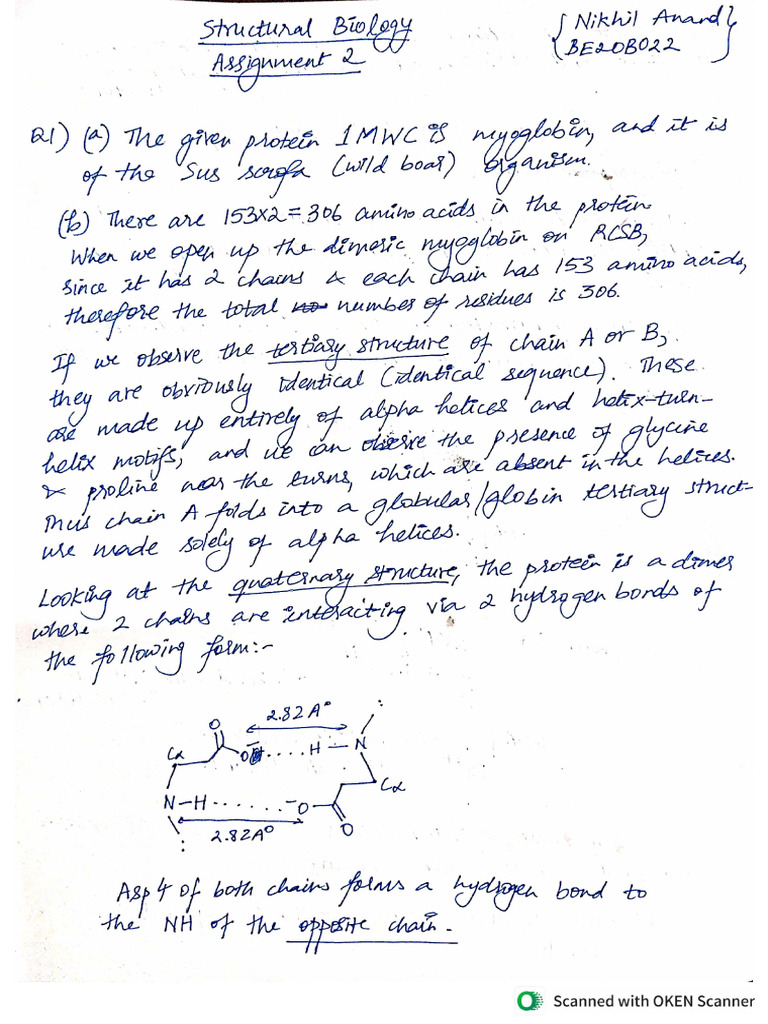 Structural Biology
Assignment 2
{Nikhil Anand}
{BE20B022}
Q1) (a) The given protein 1MWC is myoglobin, and it is
of the Sus scrofa (wild boar) organism.
(b) There are 153x2 = 306 amino acids in the protein.
When we open up the dimeric myoglobin on RCSB,
since it has 2 chains & each chain has 153 amino acids,
therefore the total number of residues is 306.
If we observe the tertiary structure of chain A or B,
they are obviously identical (identical sequence). These
are made up entirely of alpha helices and helix-turn-
helix motifs, and we can observe the presence of glycine
& proline near the turns, which are absent in the helices.
Thus chain A folds into a globular/globin tertiary struct-
ure made solely of alpha helices.
Looking at the quaternary structure, the protein is a dimer
where 2 chains are interacting via 2 hydrogen bonds of
the following form:-
2.82 A°
O
Cα O⁻ .... H — N
Cα
N—H ...... ⁻O
2.82A° O
Asp 4 of both chains forms a hydrogen bond to
the NH of the opposite chain.
Scanned with OKEN Scanner